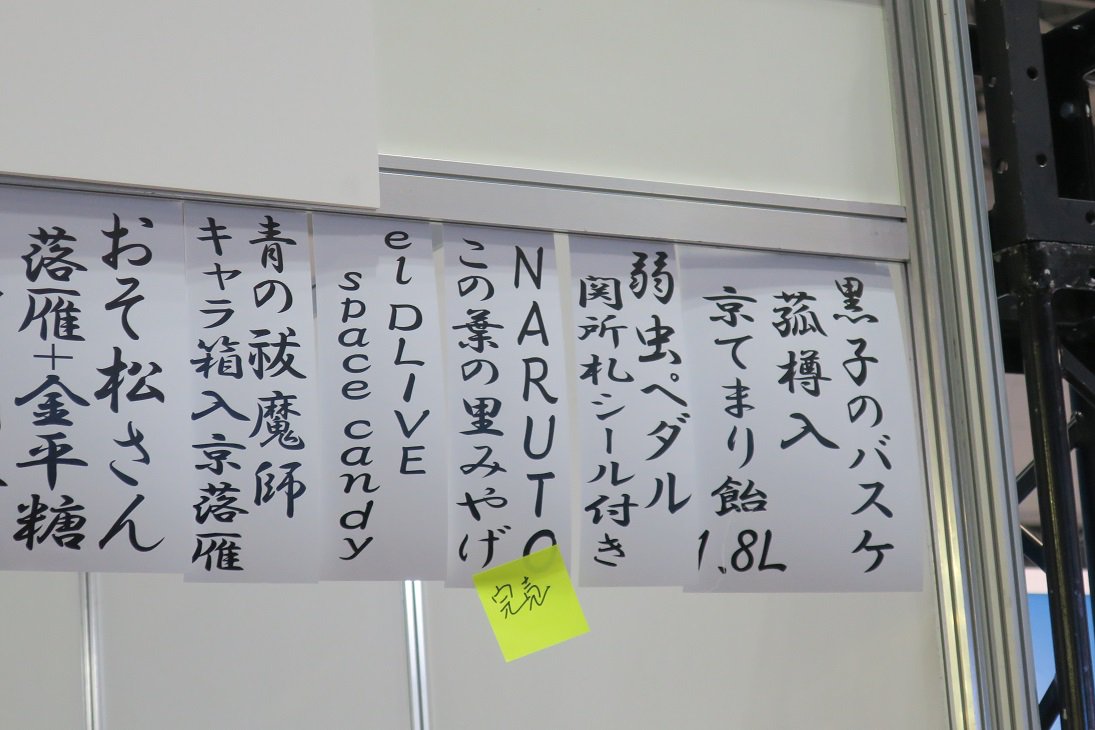 黒子のバスケ
菰樽入
京てまり飴
1.8L
弱虫ペダル
関所札シール付き
NARUTO
この葉の里みやげ
完売
elDLIVE
space candy
青の祓魔師
キャラ箱入京落雁
おそ松さん
落雁+金平糖